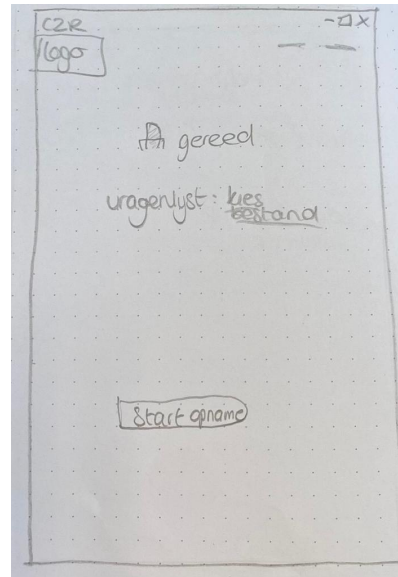 CZR
logo
gereed
vragenlyst: kies
bestand
Start opname